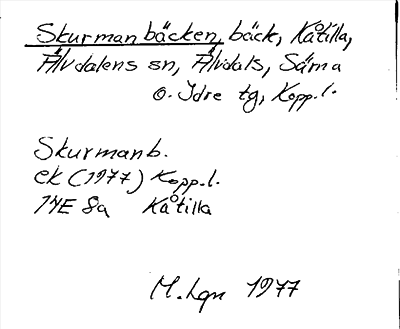 Skurmanbäcken, bäck, Kåtilla,
Älvdalens sn, Älvdals, Särna
o. Idre tg, Kopp.l.
Skurmanb.
ek (1977) Kopp.l.
14E 8a Kåtilla
M. Lgn 1977